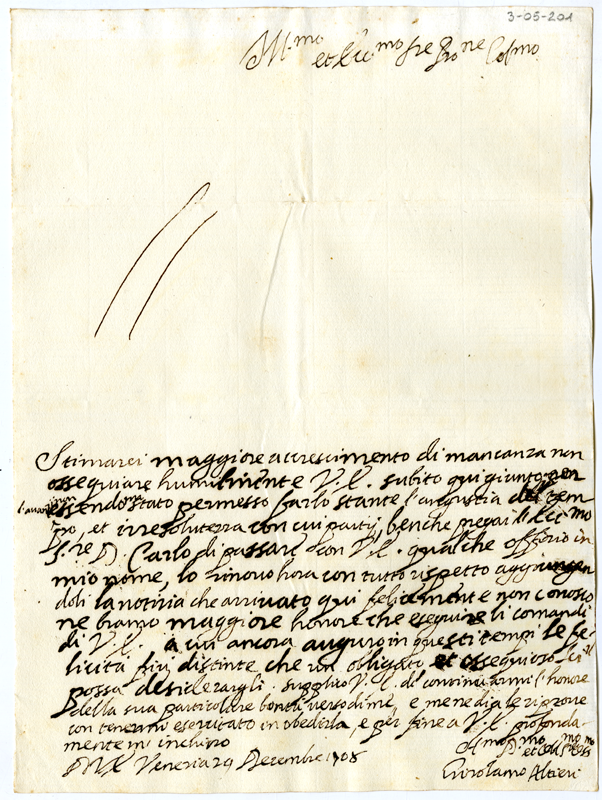 3-05-201
Ill.mo et Ecc.mo Sre Pro.ne Col.mo
Stimarei maggiore accrescimento di mancanza non
ossequiare humilmente V.E. subito qui giunto, non
essendo stato permesso farlo stante l'angustia del tem
po, et irresolutezza con cui partij, benche pregai l'Ecc.mo
S.re D. Carlo di passare con V.E. qualche offitio in
mio nome, lo rinovo hora con tutto rispetto aggiungen
doli la notizia che arrivato qui felicemente non conosco,
ne bramo maggiore honore che eseguire li comandi
di V.E. a cui ancora auguro in questi tempi le fe
licità più distinte che un obligato et ossequioso
possa desiderargli. supplico V.E. di continuarmi l'honore
della sua particolare bontà verso di me, e me ne dia le riprove
con tenermi esercitato in obedirla, e per fine a V.E. profonda
mente m'inchino
D.V.E. Venezia 29 Decembre 1708
Girolamo Altieri